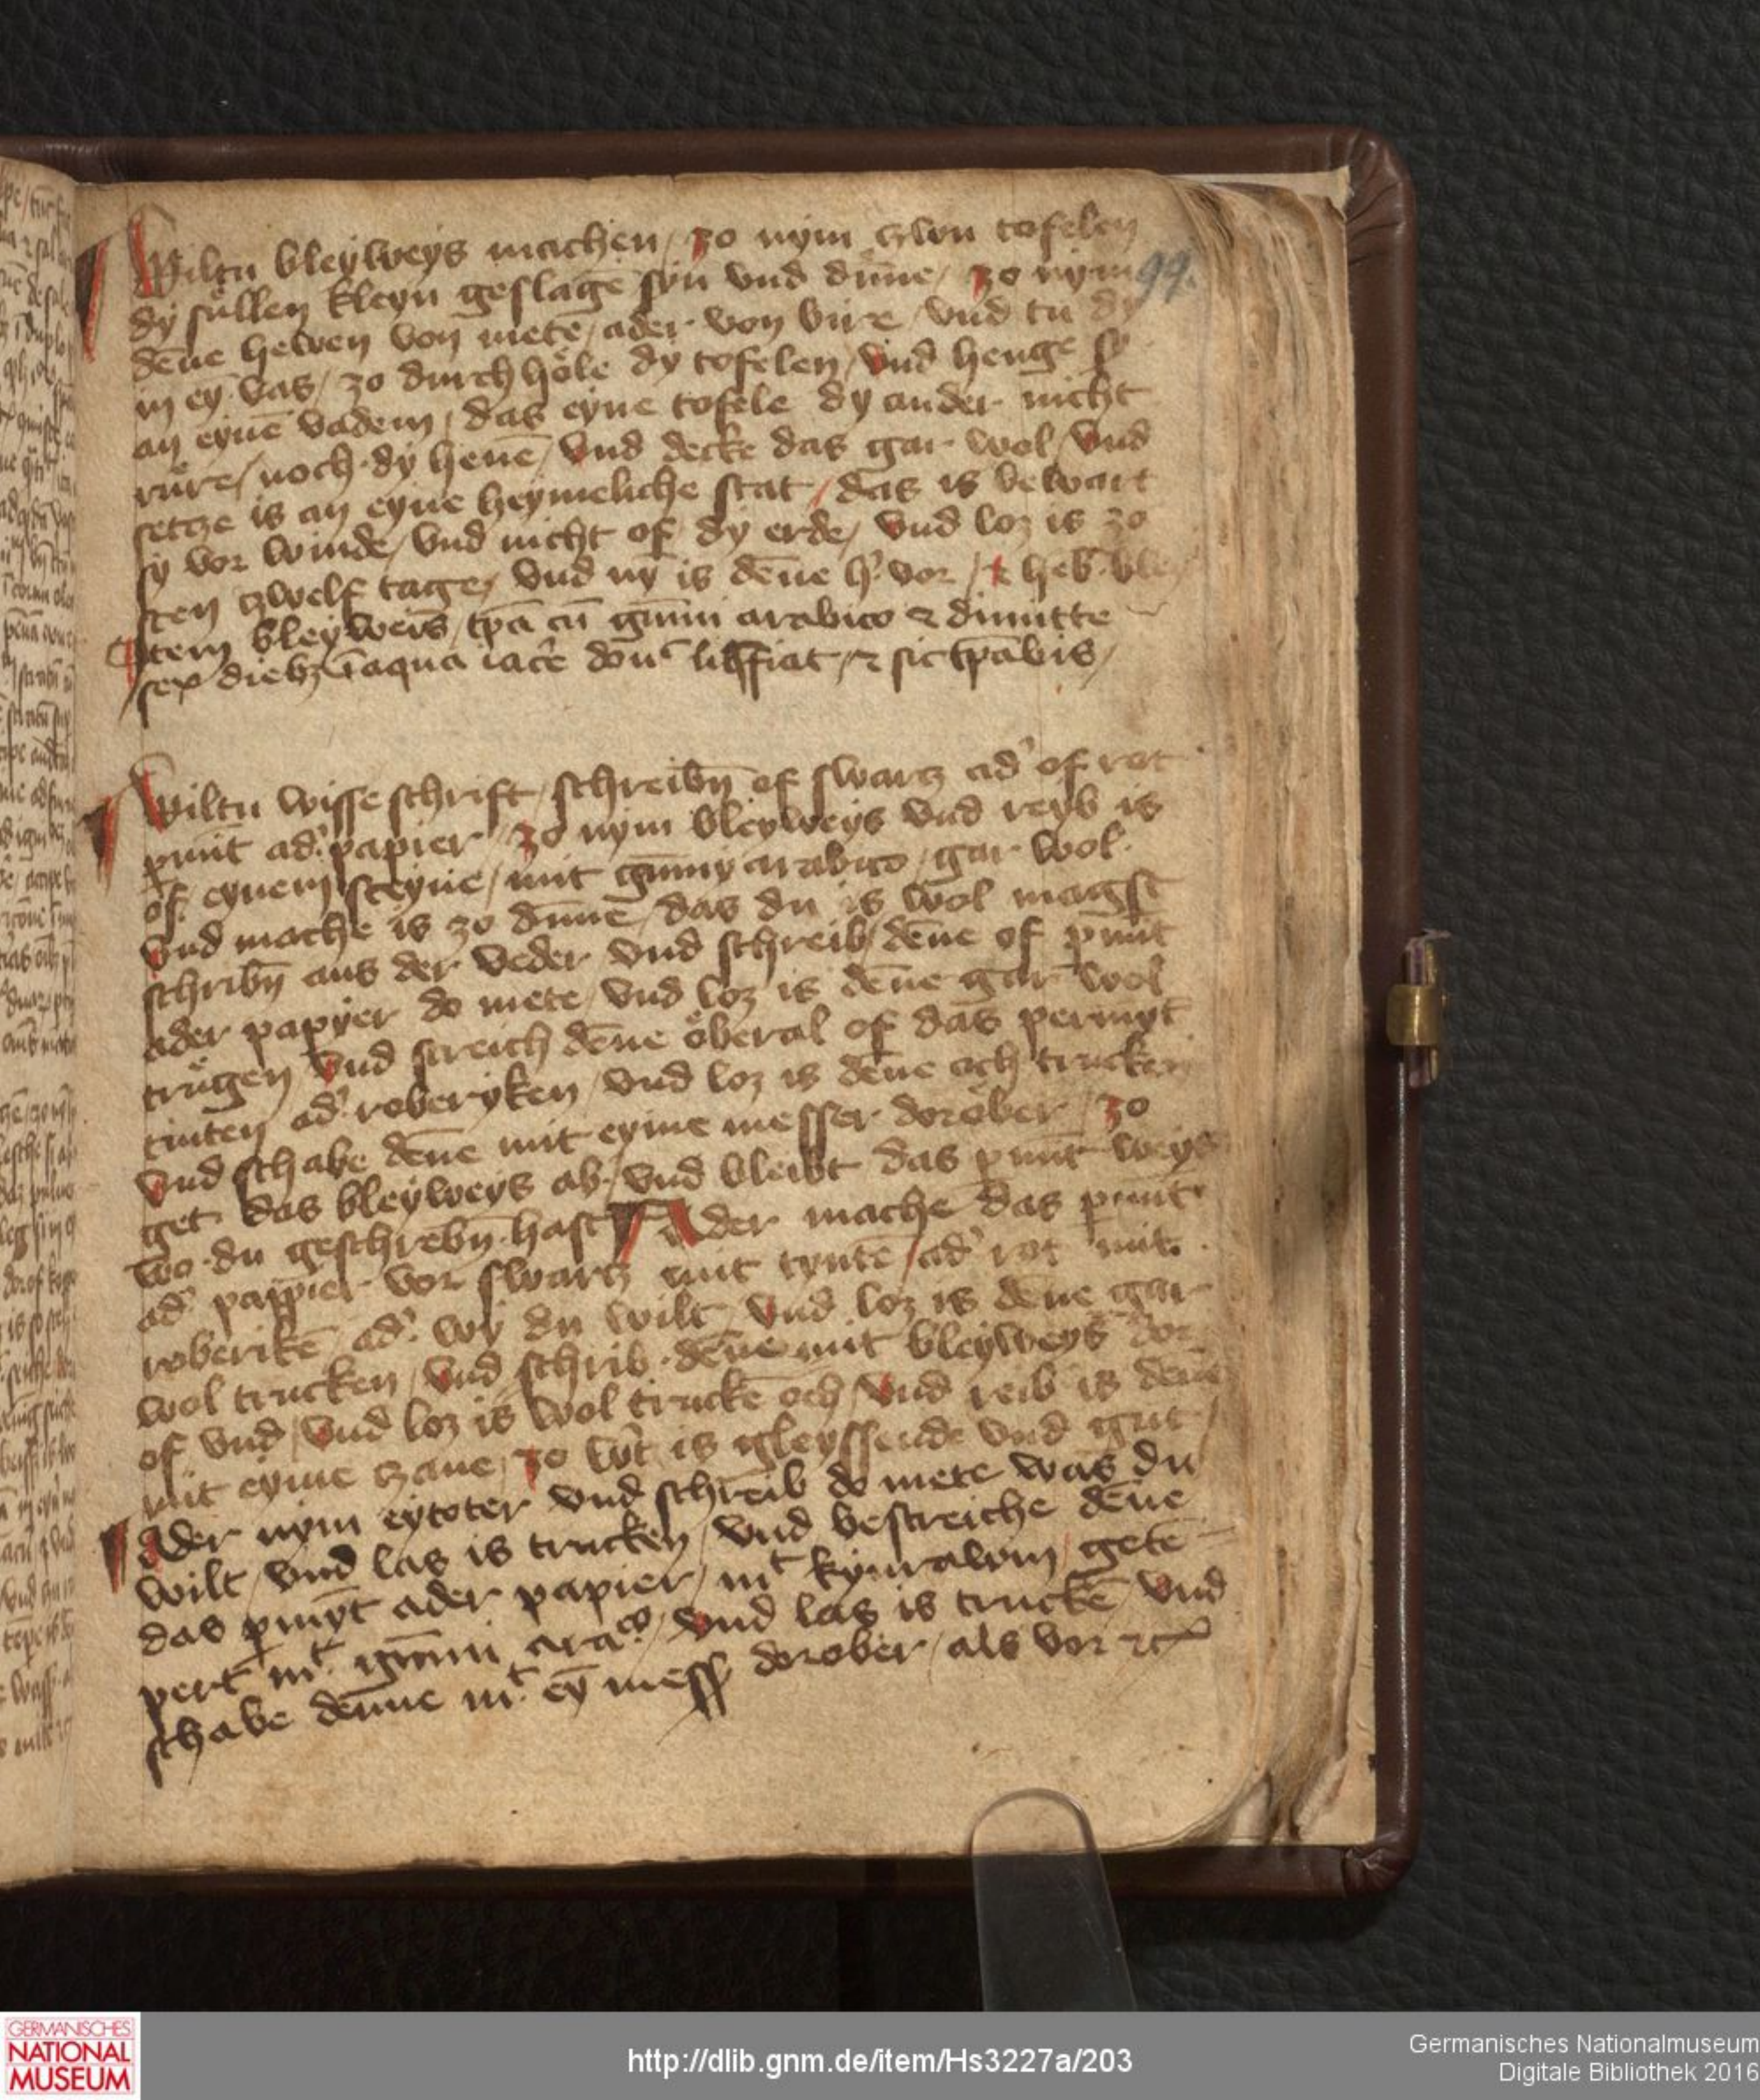 Wiltu bleyweys machen / zo nym czwu tofelen
dy süllen kleyn geslagē syn vnd dūne / zo nym
99.
dēne heven von mete / ader von bire / vnd tu dy
in ey vas / zo durch höle dy tofelen / vnd henge sy
an eynē vadem / das eyne tofele dy ander nicht
rüre / noch dy hevē / vnd decke das gar wol / vnd
setcze is an eyne heymeliche stat / das is bewart
sy vor winde / vnd nicht of dy erde / vnd loz is zo
sten czwelf tage / vnd nȳ is dēne h' vor /
Item bleyweis / tp̄a cū gūmi arabico ⁊ dimitte
sex dieb₃ ī aqua iacˀe don̄ / ⁊ sic tp̄abis /
Wiltu wisse schrift / schreibn̄ of swarcz ad' of rot
pmīt ad' papier / zo nym bleyweys vnd reyb is
of eynem steyne / mit gūmy arabico / gar wol
vnd mache is zo dūnē / das du is wol magst
schribn̄ aus der veder vnd schreib dēne of pmīt
ader papyer do mete / vnd loz is dēne gar wol
trügen / vnd streich dēne öberal of das permȳt
tinten ad' roberyken / vnd loz is dēne och trucken
vnd schabe dēne mit eyme messer doröber / zo
get das bleyweys ab / vnd bleibt das pmīt weys
wo du geschrebn̄ hast Ader mache das pmīt
ad' pappier vor swarcz mit tyntē / ad' rot mit
roberikē / ad' wy du wilt / vnd loz is dēne gar
wol trucken / vnd schrib dēne mit bleyweys dor
of vnd / vnd loz is wol truckē och / vnd reib is dēne
mit eyme czane / zo wˀt is gleyssende vnd gut /
Ader nym eytoter vnd schreib do mete was du
wilt / vnd las is trucken / vnd bestreiche dēne
das pmȳt ader papier / mᵗ kynrawm / getē
pert mᵗ gūmi arāᶜᵒ / vnd las is truckē vnd
schabe dēnne mᵗ eȳ mess' dorober / als vor ⁊c
GERMANISCHES
NATIONAL
MUSEUM
http://dlib.gnm.de/item/Hs3227a/203
Germanisches Nationalmuseum
Digitale Bibliothek 2016